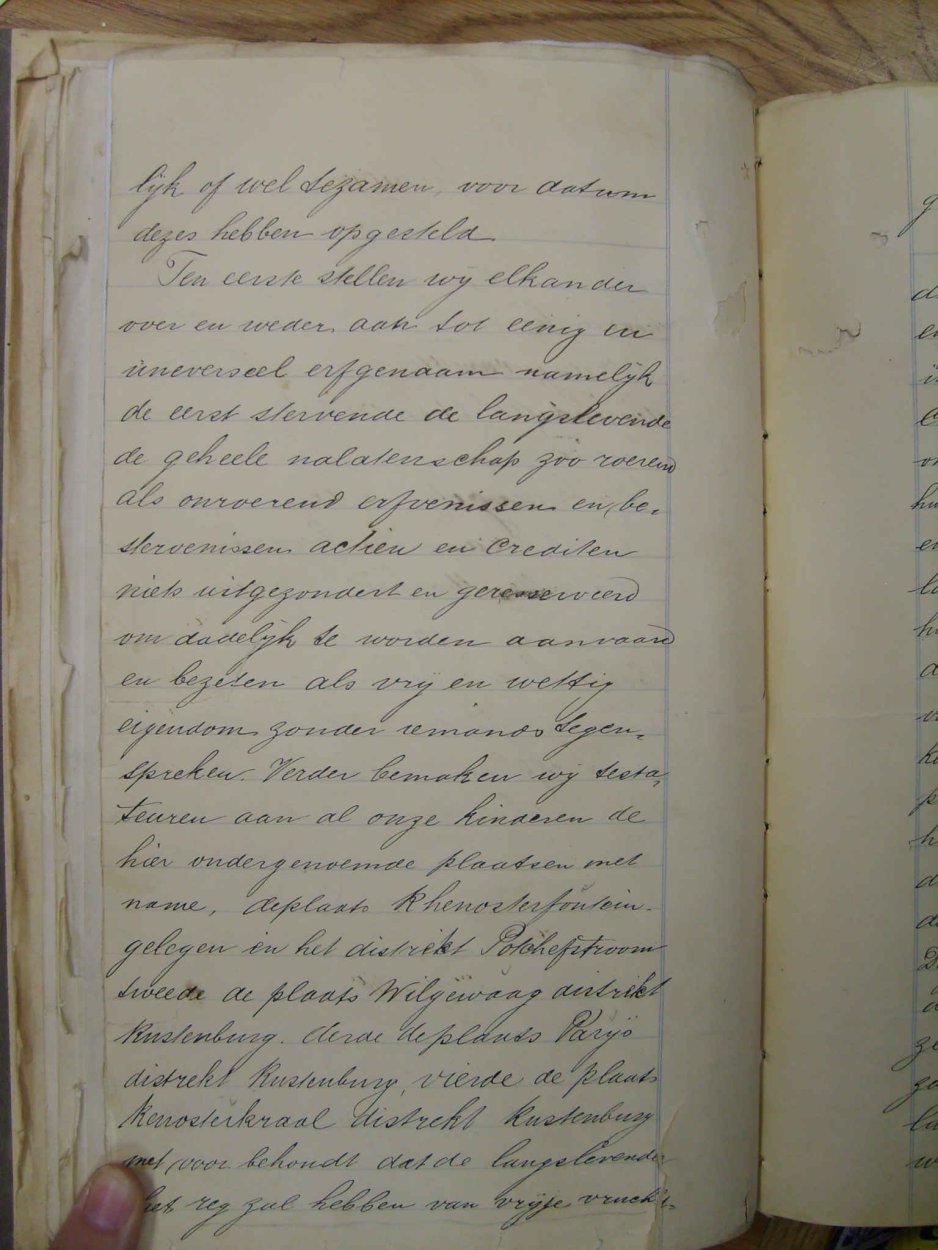 lijk of wel tezamen, voor datum
dezes hebben opgesteld
Ten eerste stellen wij elkander
over en weder aan tot eenig en
uneverseel erfgenaam namelijk
de eerst stervende de langslevende
de geheele nalatenschap zoo roerend
als onroerend erfvenissen en be-
stervenissen actien en Crediten
niets uitgezondert en geresserveerd
om dadelijk te worden aanvaard
en bezeten als vrij en wettig
eigendom zonder iemands tegen-
spreken. Verder bemaken wij testa-
teuren aan al onze kinderen de
hier ondergenoemde plaatsen met
name, deplaats Rhenosterfontein
gelegen in het distrikt Potchefstroom
tweede de plaats Wilgewaag distrikt
Rustenburg. derde deplaats Parijs
distrekt Rustenburg, vierde de plaats
Renosterkraal distrekt Rustenburg
met voor behoudt dat de langslevende
het reg zal hebben van vrije vrucht-